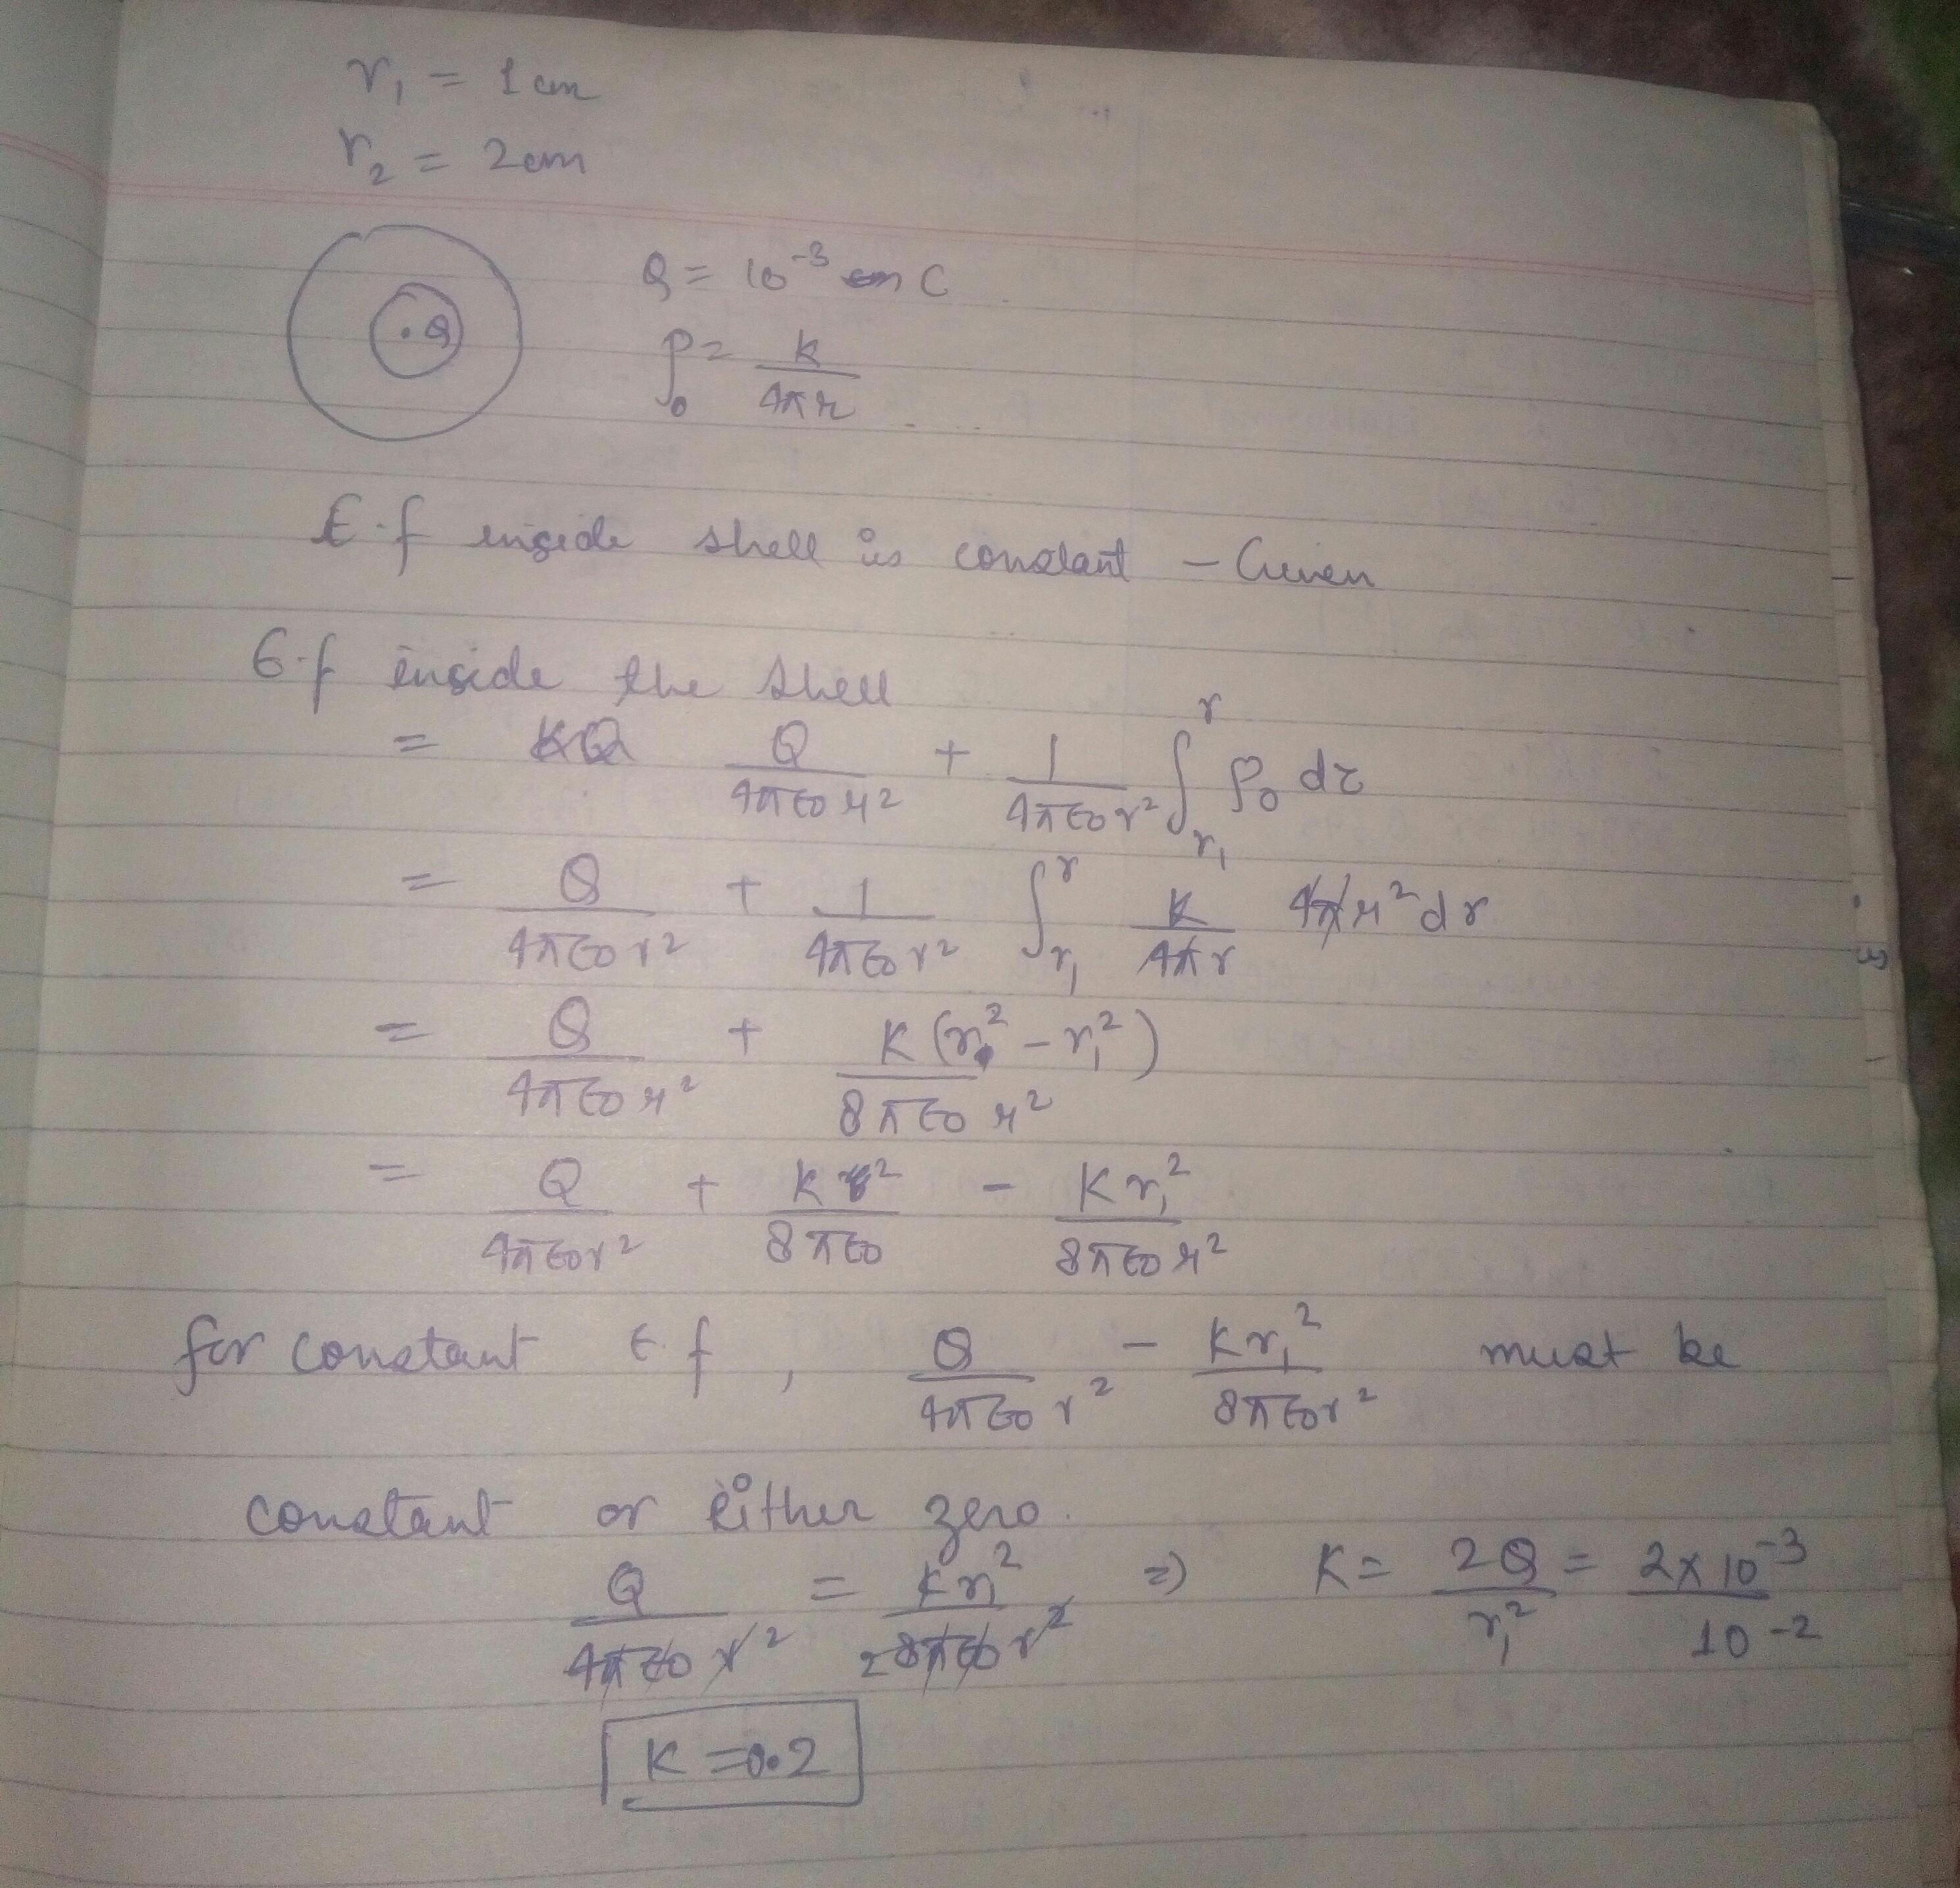 r₁ = 1 cm
r₂ = 2 cm
.Q
Q = 10⁻³ C
ρ₀ = k/4πr
E.f inside shell is constant – Given
E.f inside the shell
= KQ Q/4πε₀r² + 1/4πε₀r² ∫_{r₁}^{r} ρ₀ dτ
= Q/4πε₀r² + 1/4πε₀r² ∫_{r₁}^{r} K/4πr 4πr² dr
= Q/4πε₀r² + K(r² – r₁²)/8πε₀r²
= Q/4πε₀r² + K r²/8πε₀ – K r₁²/8πε₀r²
for constant E.f, Q/4πε₀r² – Kr₁²/8πε₀r² must be
constant or either zero.
Q/4πε₀r² = Kr₁²/28πε₀r² ⇒ K = 2Q/r₁² = 2×10⁻³/10⁻²
K = 0.2